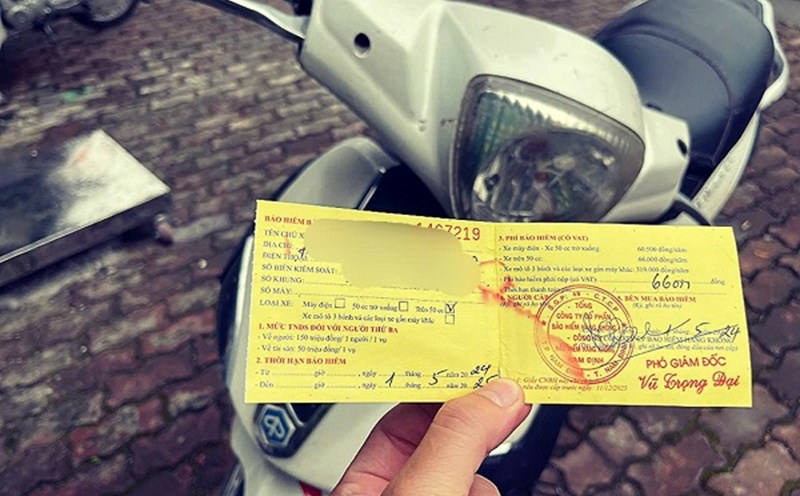 BẢO HIỂM B
TÊN CHỦ X
ĐỊA CHỈ: 1
ĐIỆN THOẠI:
SỐ BIỂN KIỂM SOÁT:
SỐ KHUNG:
SỐ MÁY:
LOẠI XE: Máy điện 50 cc trở xuống: Trên 50 cc
Xe mô tô 3 bánh và các loại xe gắn máy khác
1. MỨC TNDS ĐỐI VỚI NGƯỜI THỨ BA
- Về người: 150 triệu đồng/ 1 người / 1 vụ
- Về tài sản: 50 triệu đồng/ 1 vụ
2. THỜI HẠN BẢO HIỂM
- Từ giờ , ngày tháng năm 20 24
- Đến giờ , ngày 1 tháng 5 năm 20 25
3. PHÍ BẢO HIỂM (CÓ VAT)
- Xe máy điện - Xe 50 cc trở xuống: 60.500 đồng/năm
- Xe trên 50 cc: 66.000 đồng/năm
- Xe mô tô 3 bánh và các loại xe gắn máy khác: 319.000 đồng/năm
- Phí bảo hiểm phải nộp (có VAT) 66000 đồng
BÊN MUA BẢO HIỂM
TỔNG
CÔNG TY CỔ PHẦN
BẢO HIỂM HÀNG KHÔNG
NAM ĐỊNH
1 tháng 5 24
BẢO HIỂM HÀNG KHÔNG
PHÓ GIÁM ĐỐC
Vũ Trọng Đại
cấp trước ngày: 11/12/2025